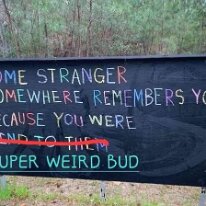 OME STRANGER
OMEWHERE REMEMBERS YO
ECAUSE YOU WERE
END TO THEM
UPER WEIRD BUD